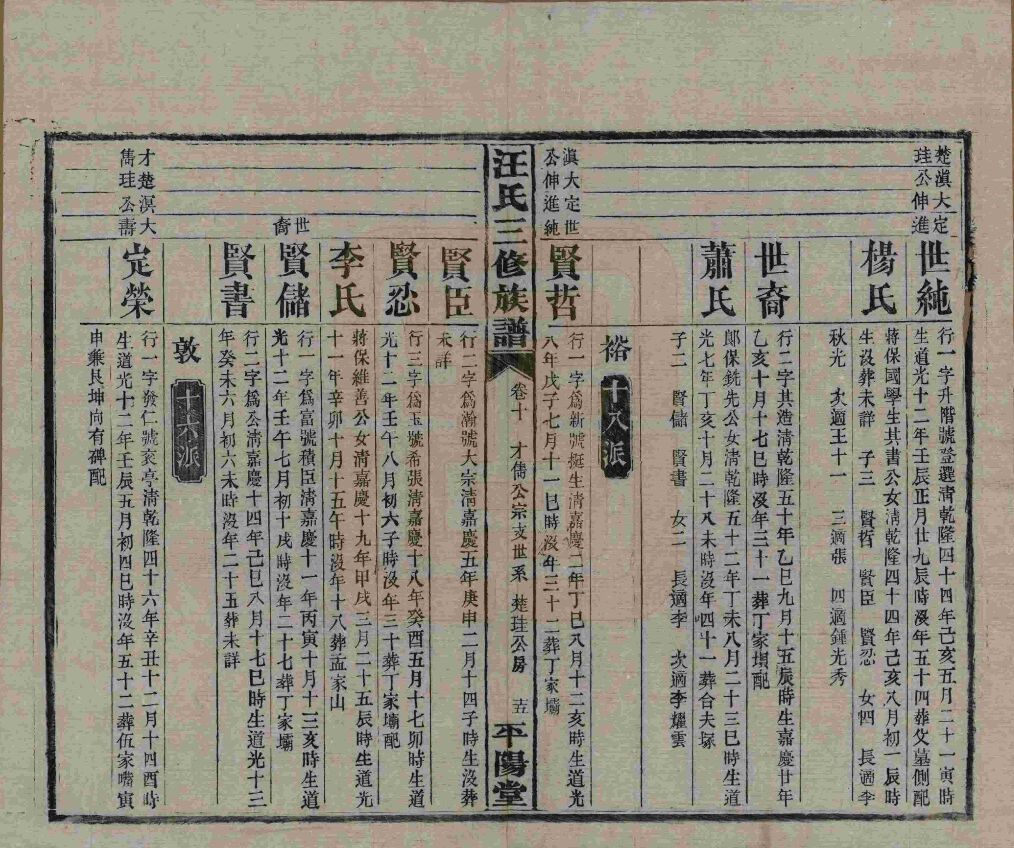 楚滇大定
珪公伸進
世純
行一字升階號登選清乾隆四十四年己亥五月二十一寅時
生道光十二年壬辰正月廿九辰時沒年五十四葬父墓側配
楊氏
蔣保國學生其書公女清乾隆四十四年己亥八月初一辰時
生沒葬未詳 子三 賢哲 賢臣 賢忍 女四 長適李
秋光 次適王十一 三適張 四適鍾光秀
世裔
行二字其造清乾隆五十年乙巳九月十五辰時生嘉慶廿年
乙亥十月十七巳時沒年三十一葬丁家垻配
蕭氏
郞保銑先公女清乾隆五十二年丁未八月二十三巳時生道
光七年丁亥十月二十八未時沒年四十一葬合夫塚
子二 賢儲 賢書 女二 長適李 次適李耀雲
裕
十八派
滇大定世
公伸進純
賢哲
行一字爲新號挺生清嘉慶二年丁巳八月十二亥時生道光
八年戊子七月十一巳時沒年三十二葬丁家壩
汪氏三修族譜
卷十 才雋公宗支世系 楚珪公房 十五
平陽堂
賢臣
行二字爲瀚號大宗清嘉慶五年庚申二月十四子時生沒葬
未詳
賢忍
行三字爲玉號希張清嘉慶十八年癸酉五月十七卯時生道
光十二年壬午八月初六子時沒年三十葬丁家壩配
李氏
蔣保維善公女清嘉慶十九年甲戌三月二十五辰時生道光
十一年辛卯十月十五午時沒年十八葬孟家山
世裔
賢儲
行一字爲富號積臣清嘉慶十一年丙寅十月十三亥時生道
光十二年壬午七月初十戌時沒年二十七葬丁家壩
賢書
行二字爲公清嘉慶十四年己巳八月十七巳時生道光十三
年癸未六月初六未時沒年二十五葬未詳
敦
十六派
才楚溟大
雋珪公壽
定榮
行一字發仁號袞亭清乾隆四十六年辛丑十二月十四酉時
生道光十二年壬辰五月初四巳時沒年五十二葬伍家嘴寅
申兼艮坤向有碑配